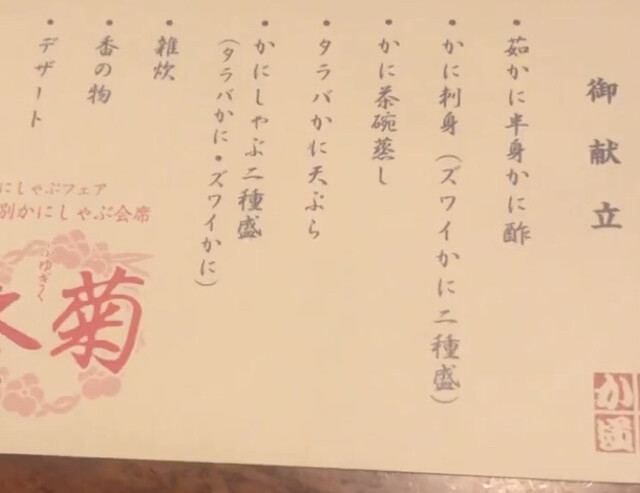 御献立
・茹かに半身かに酢
・かに刺身（ズワイかに二種盛）
・かに茶碗蒸し
・タラバかに天ぷら
・かにしゃぶ二種盛
（タラバかに・ズワイかに）
・雑炊
・香の物
・デザート
にしゃぶフェア
別かにしゃぶ会席
ゆぎく
菊
か